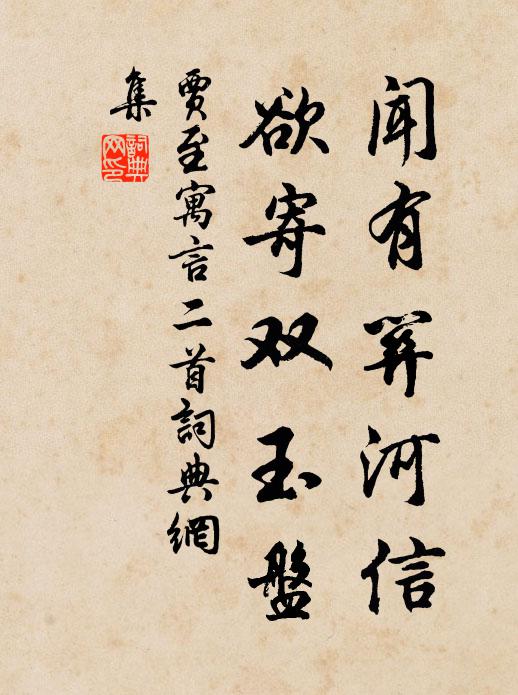 闻有关河信
欲寄双玉盘
賈至寓言二首詞典網
集
詞典
网印